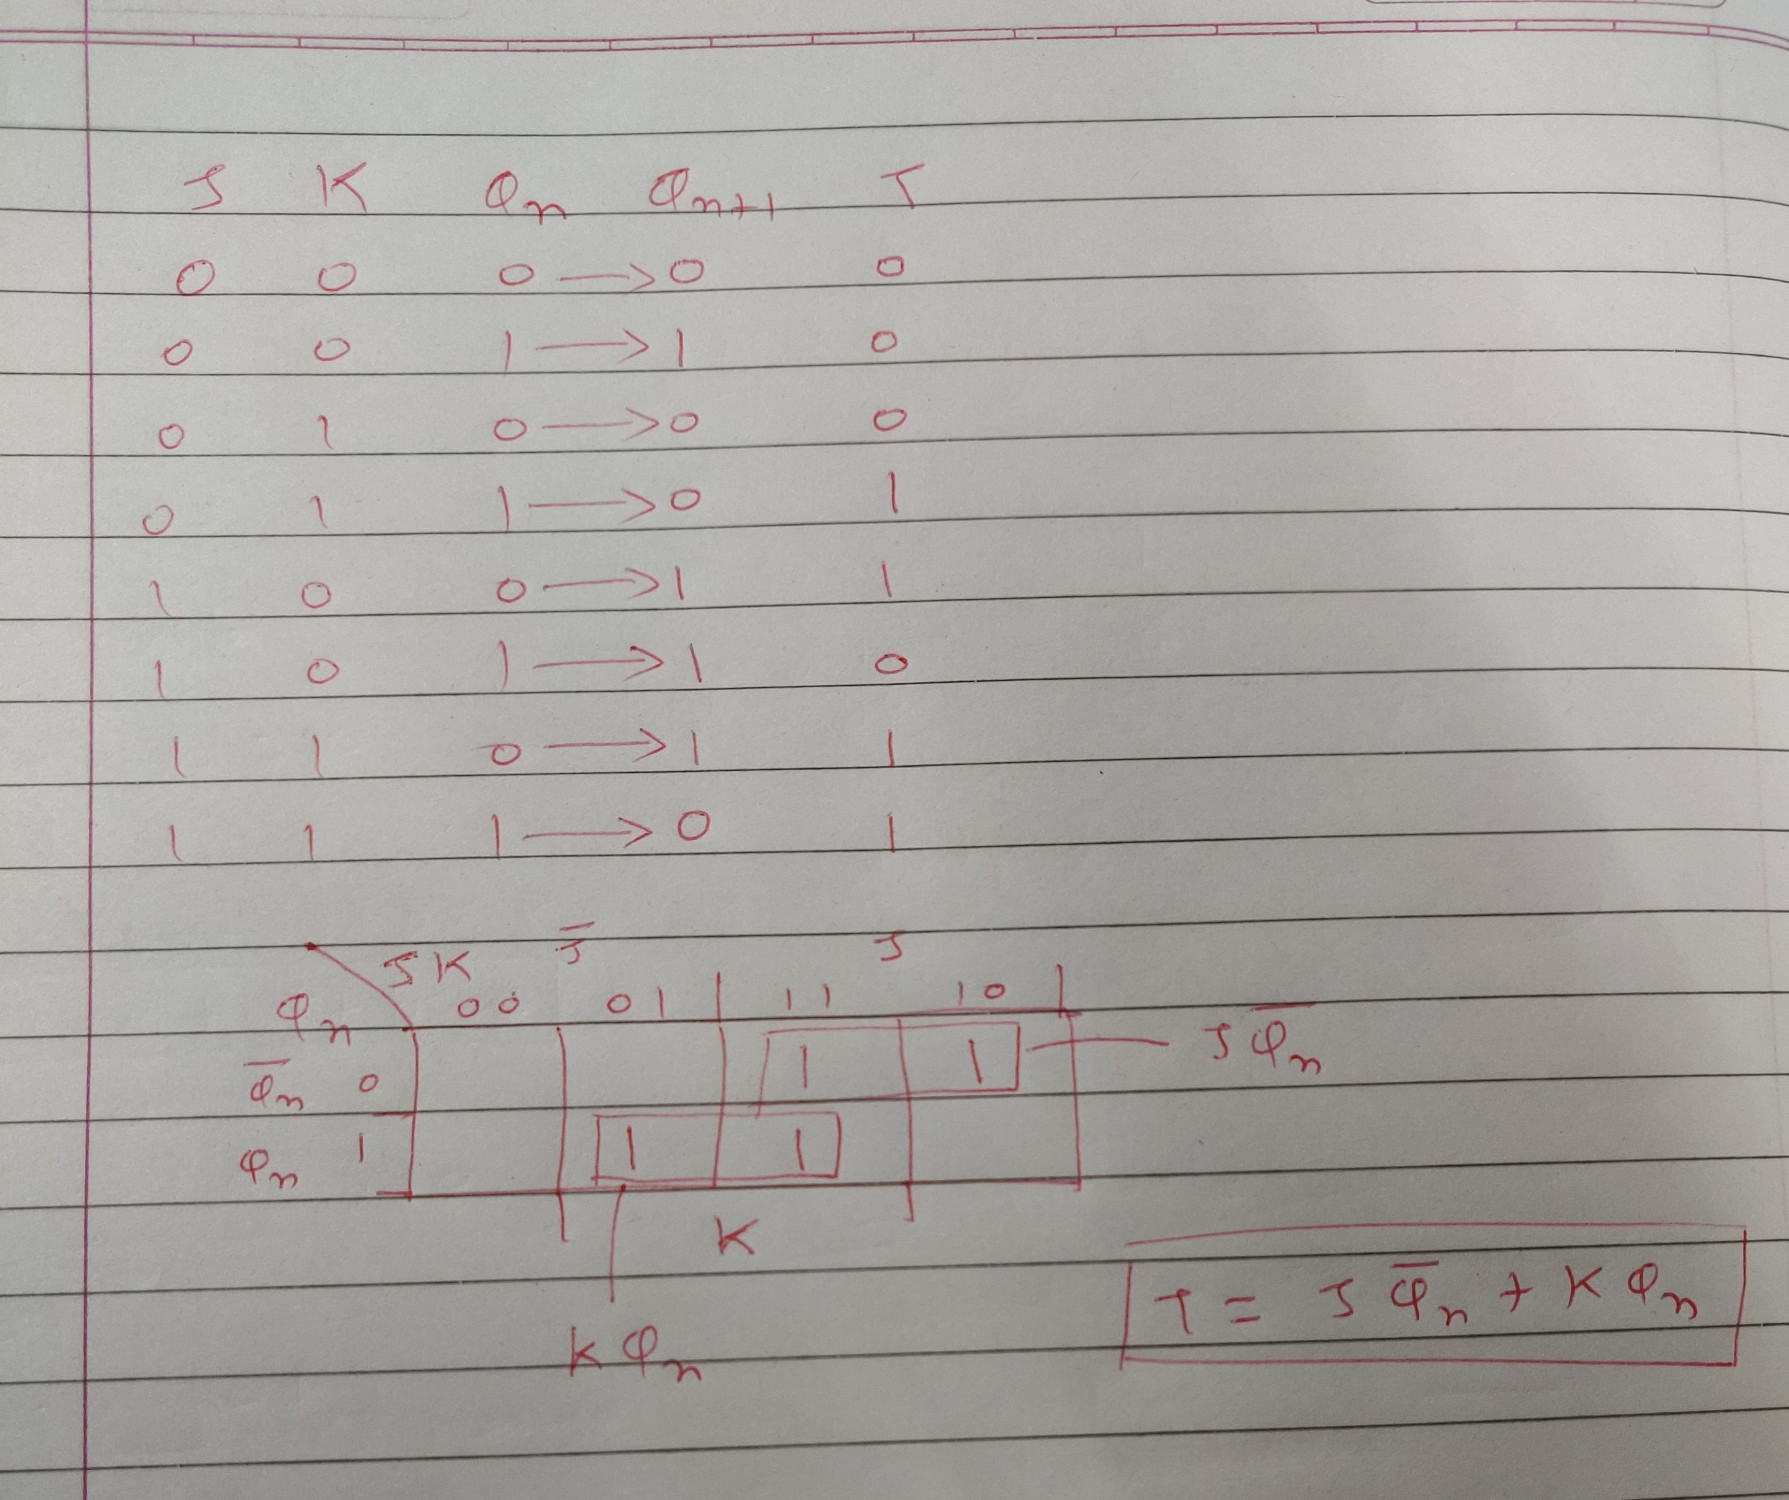 J K Qn Qn+1 T
0 0 0 → 0 0
0 0 1 → 1 0
0 1 0 → 0 0
0 1 1 → 0 1
1 0 0 → 1 1
1 0 1 → 1 0
1 1 0 → 1 1
1 1 1 → 0 1
JK J̅ J
Qn 00 01 11 10
Q̅n 0 1 1 J Q̅n
Qn 1 1 1
K
K Qn
T = J Q̅n + K Qn